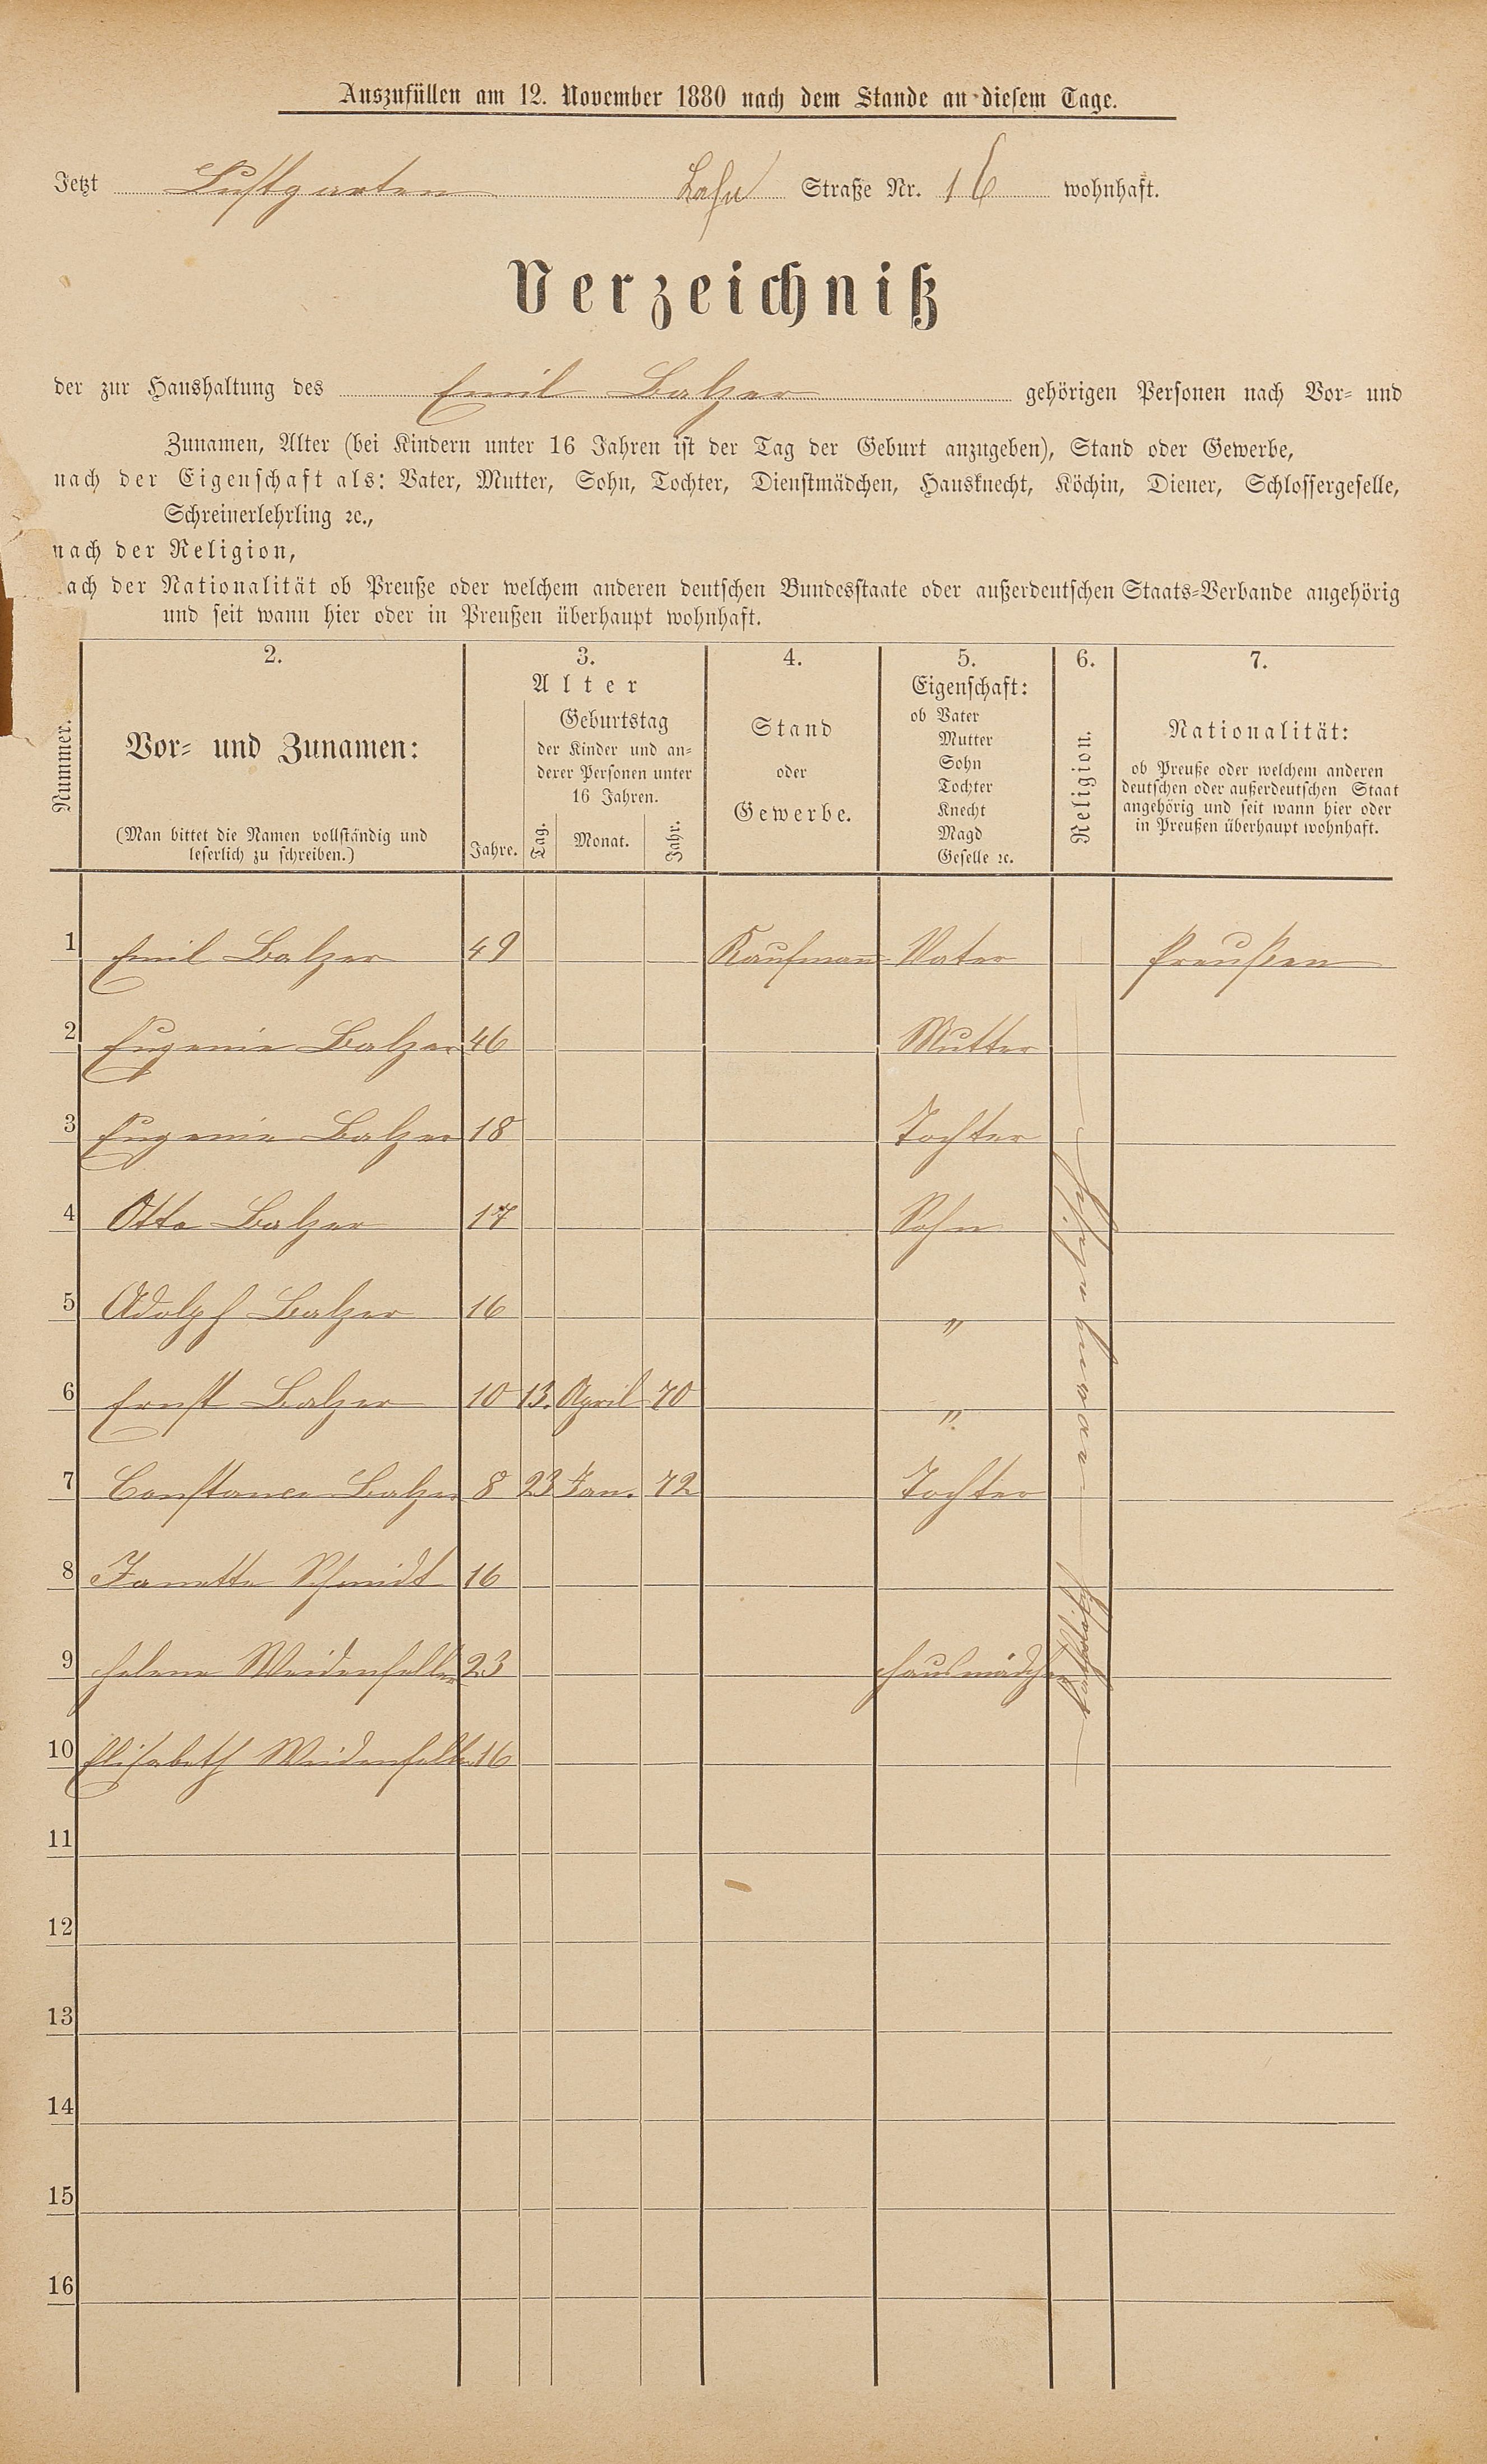 Auszufüllen am 12. November 1880 nach dem Stande an diesem Tage.
Jetzt Lustgarten Lahn Straße Nr. 16 wohnhaft.
Verzeichniß
der zur Haushaltung des Emil Balzer gehörigen Personen nach Vor- und
Zunamen, Alter (bei Kindern unter 16 Jahren ist der Tag der Geburt anzugeben), Stand oder Gewerbe,
nach der Eigenschaft als: Vater, Mutter, Sohn, Tochter, Dienstmädchen, Hausknecht, Köchin, Diener, Schlossergeselle,
Schreinerlehrling ꝛc.,
nach der Religion,
ach der Nationalität ob Preuße oder welchem anderen deutschen Bundesstaate oder außerdeutschen Staats-Verbande angehörig
und seit wann hier oder in Preußen überhaupt wohnhaft.
Nummer.
2.
Vor- und Zunamen:
(Man bittet die Namen vollständig und
leserlich zu schreiben.)
3.
Alter
Jahre.
Geburtstag
der Kinder und an-
derer Personen unter
16 Jahren.
Tag. Monat. Jahr.
4.
Stand
oder
Gewerbe.
5.
Eigenschaft:
ob Vater
Mutter
Sohn
Tochter
Knecht
Magd
Geselle ꝛc.
6.
Religion.
7.
Nationalität:
ob Preuße oder welchem anderen
deutschen oder außerdeutschen Staat
angehörig und seit wann hier oder
in Preußen überhaupt wohnhaft.
1 Emil Balzer 49 Kaufmann Vater Preußen
2 Eugenie Balzer 46 Mutter
3 Eugenie Balzer 18 Tochter
4 Otto Balzer 17 Sohn
5 Adolph Balzer 16 "
6 Ernst Balzer 10 13. April 70 "
7 Constance Balzer 8 23 Jan. 72 Tochter
8 Janette Schmidt 16
9 Helene Weidenfeller 23 Hausmädchen
10 Elisabeth Weidenfeller 16
Katholisch
11
12
13
14
15
16